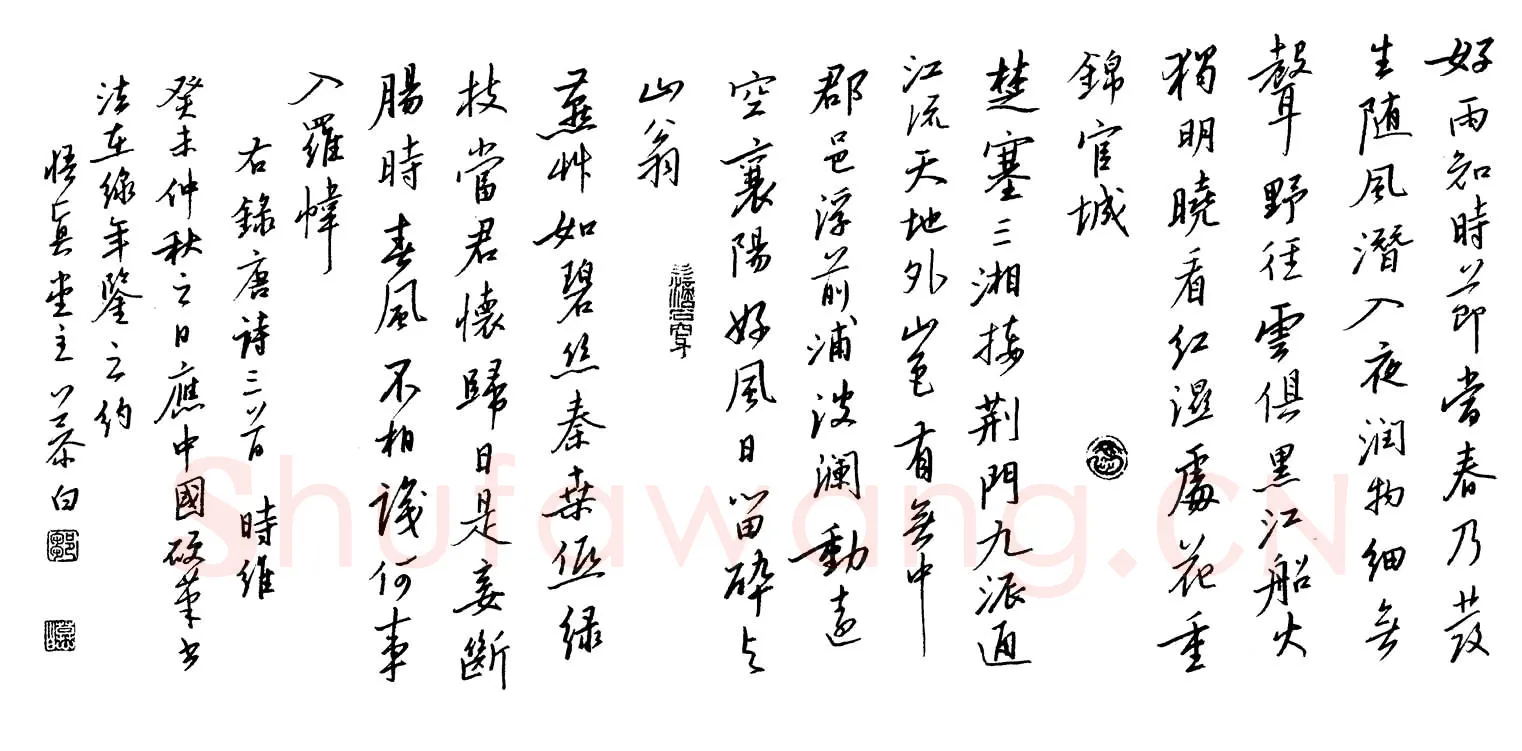 好雨知時節當春乃發
生随風潛入夜润物细無
聲野徑雲俱黑江船火
獨明曉看红濕處花重
錦官城
楚塞三湘接荆門九派通
江流天地外山色有無中
郡邑浮前浦波澜動遠
空襄陽好風日留醉与
山翁
燕艸如碧丝秦桑低绿
枝當君懷歸日是妾斷
腸時春風不相識何事
入羅幃
右錄唐詩三首 時維
癸未仲秋之日應中國硬筆书
法在線年鑒之约
悟真堂主白
Shufawang.CN